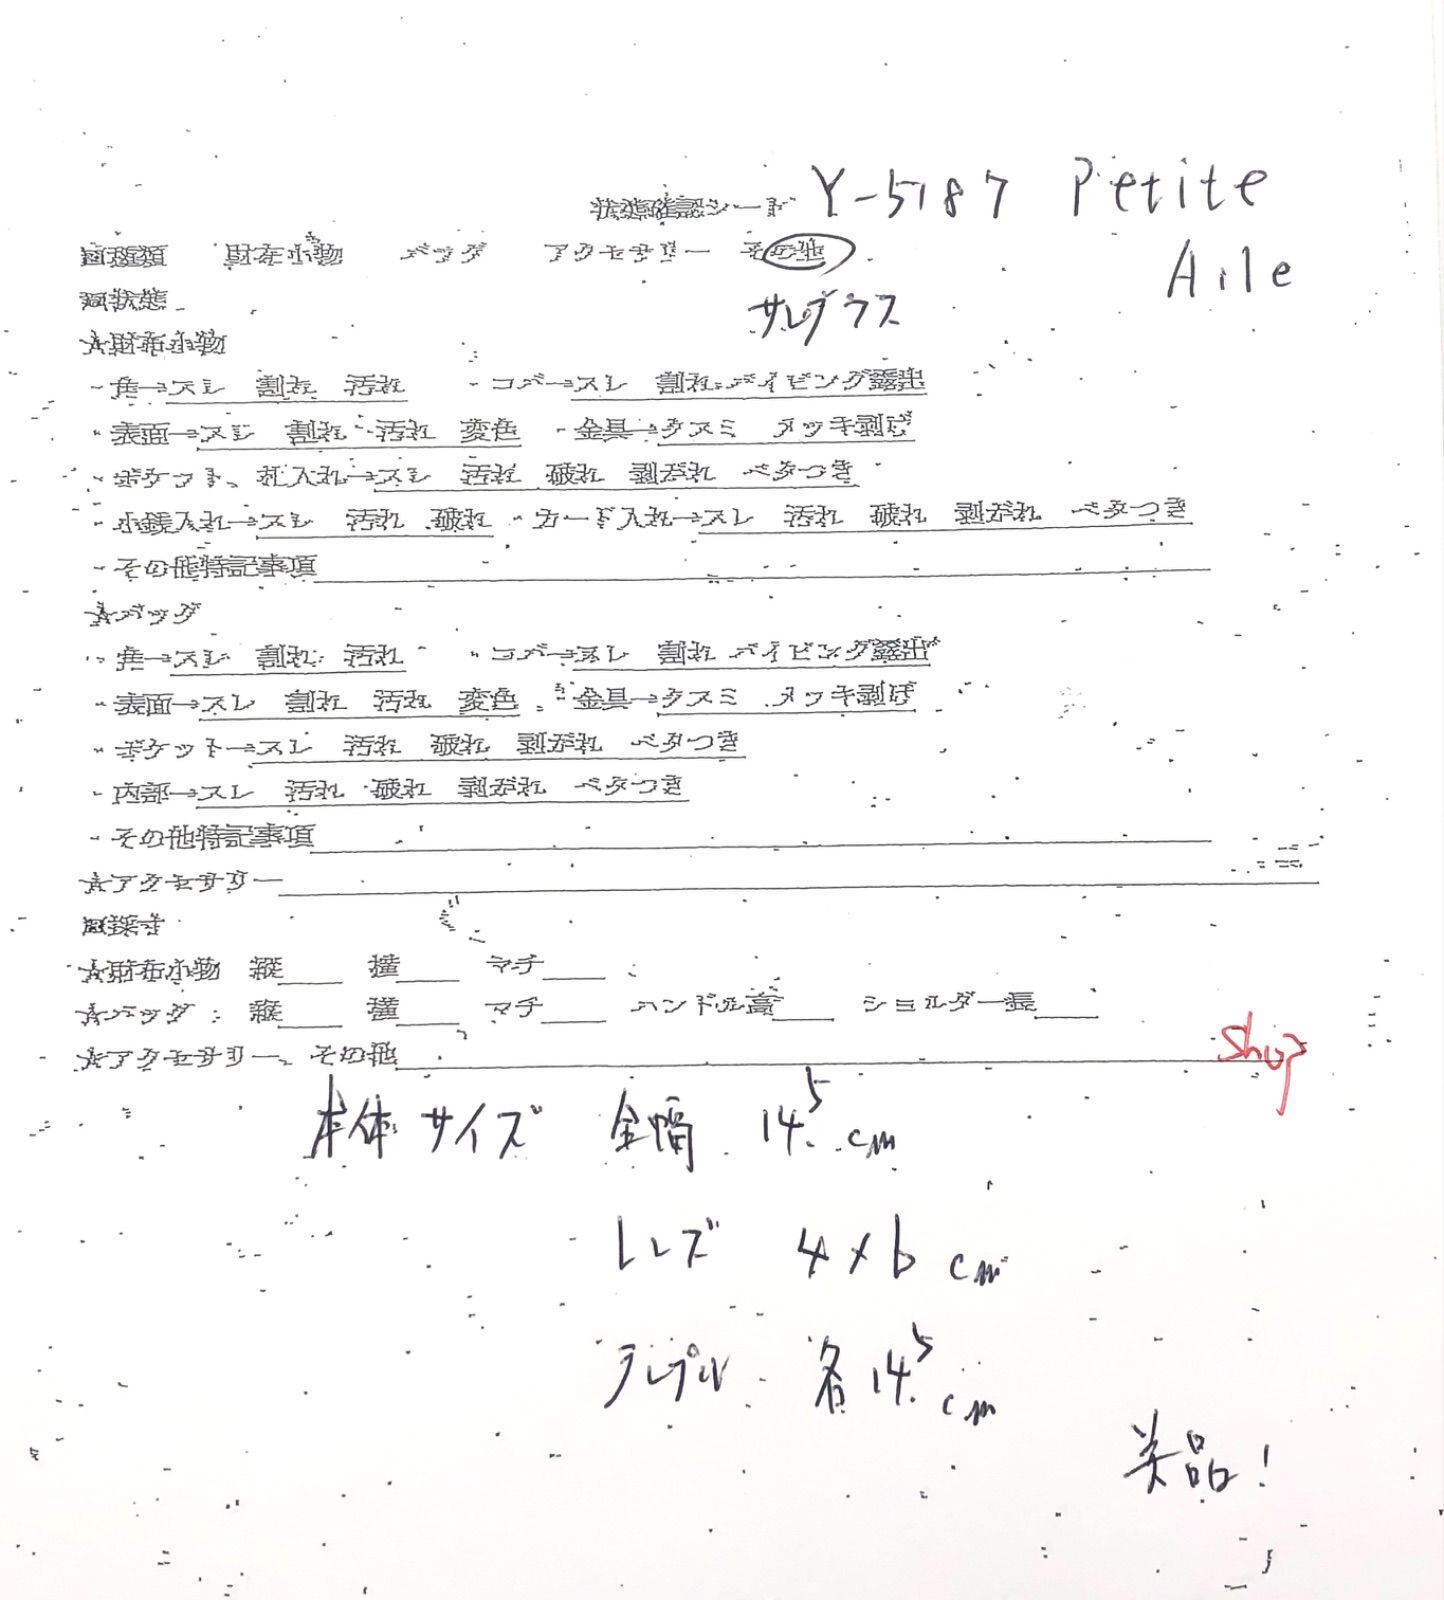 状態確認シート Y-5187 Petite Aile
□種類 財布小物 バッグ アクセサリー その他
サングラス
□状態
☆財布小物
・角→スレ 割れ 汚れ ・コバ→スレ 割れ パイピング露出
・表面→スレ 割れ 汚れ 変色 ・金具→クスミ メッキ剥げ
・ポケット、札入れ→スレ 汚れ 破れ 剥がれ ベタつき
・小銭入れ→スレ 汚れ 破れ ・カード入れ→スレ 汚れ 破れ 剥がれ ベタつき
・その他特記事項
☆バッグ
・角→スレ 割れ 汚れ ・コバ→スレ 割れ パイピング露出
・表面→スレ 割れ 汚れ 変色 ・金具→クスミ メッキ剥げ
・ポケット→スレ 汚れ 破れ 剥がれ ベタつき
・内部→スレ 汚れ 破れ 剥がれ ベタつき
・その他特記事項
☆アクセサリー
□採寸
☆財布小物 縦 横 マチ
☆バッグ 縦 横 マチ ハンドル高 ショルダー長
☆アクセサリー、その他
shop
本体サイズ 全幅 14.5 cm
レンズ 4×6 cm
テンプル 各14.5 cm
美品!